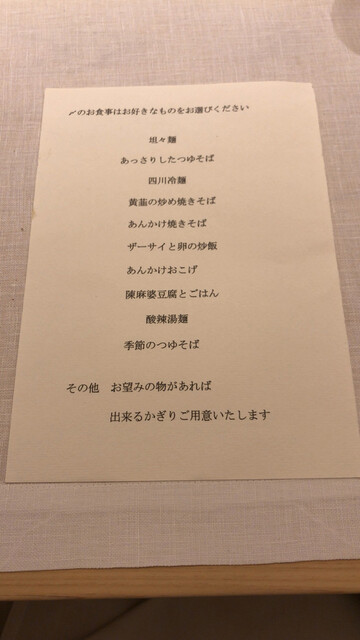 〆のお食事はお好きなものをお選びください
坦々麺
あっさりしたつゆそば
四川冷麺
黄韮の炒め焼きそば
あんかけ焼きそば
ザーサイと卵の炒飯
あんかけおこげ
陳麻婆豆腐とごはん
酸辣湯麺
季節のつゆそば
その他　お望みの物があれば
出来るかぎりご用意いたします